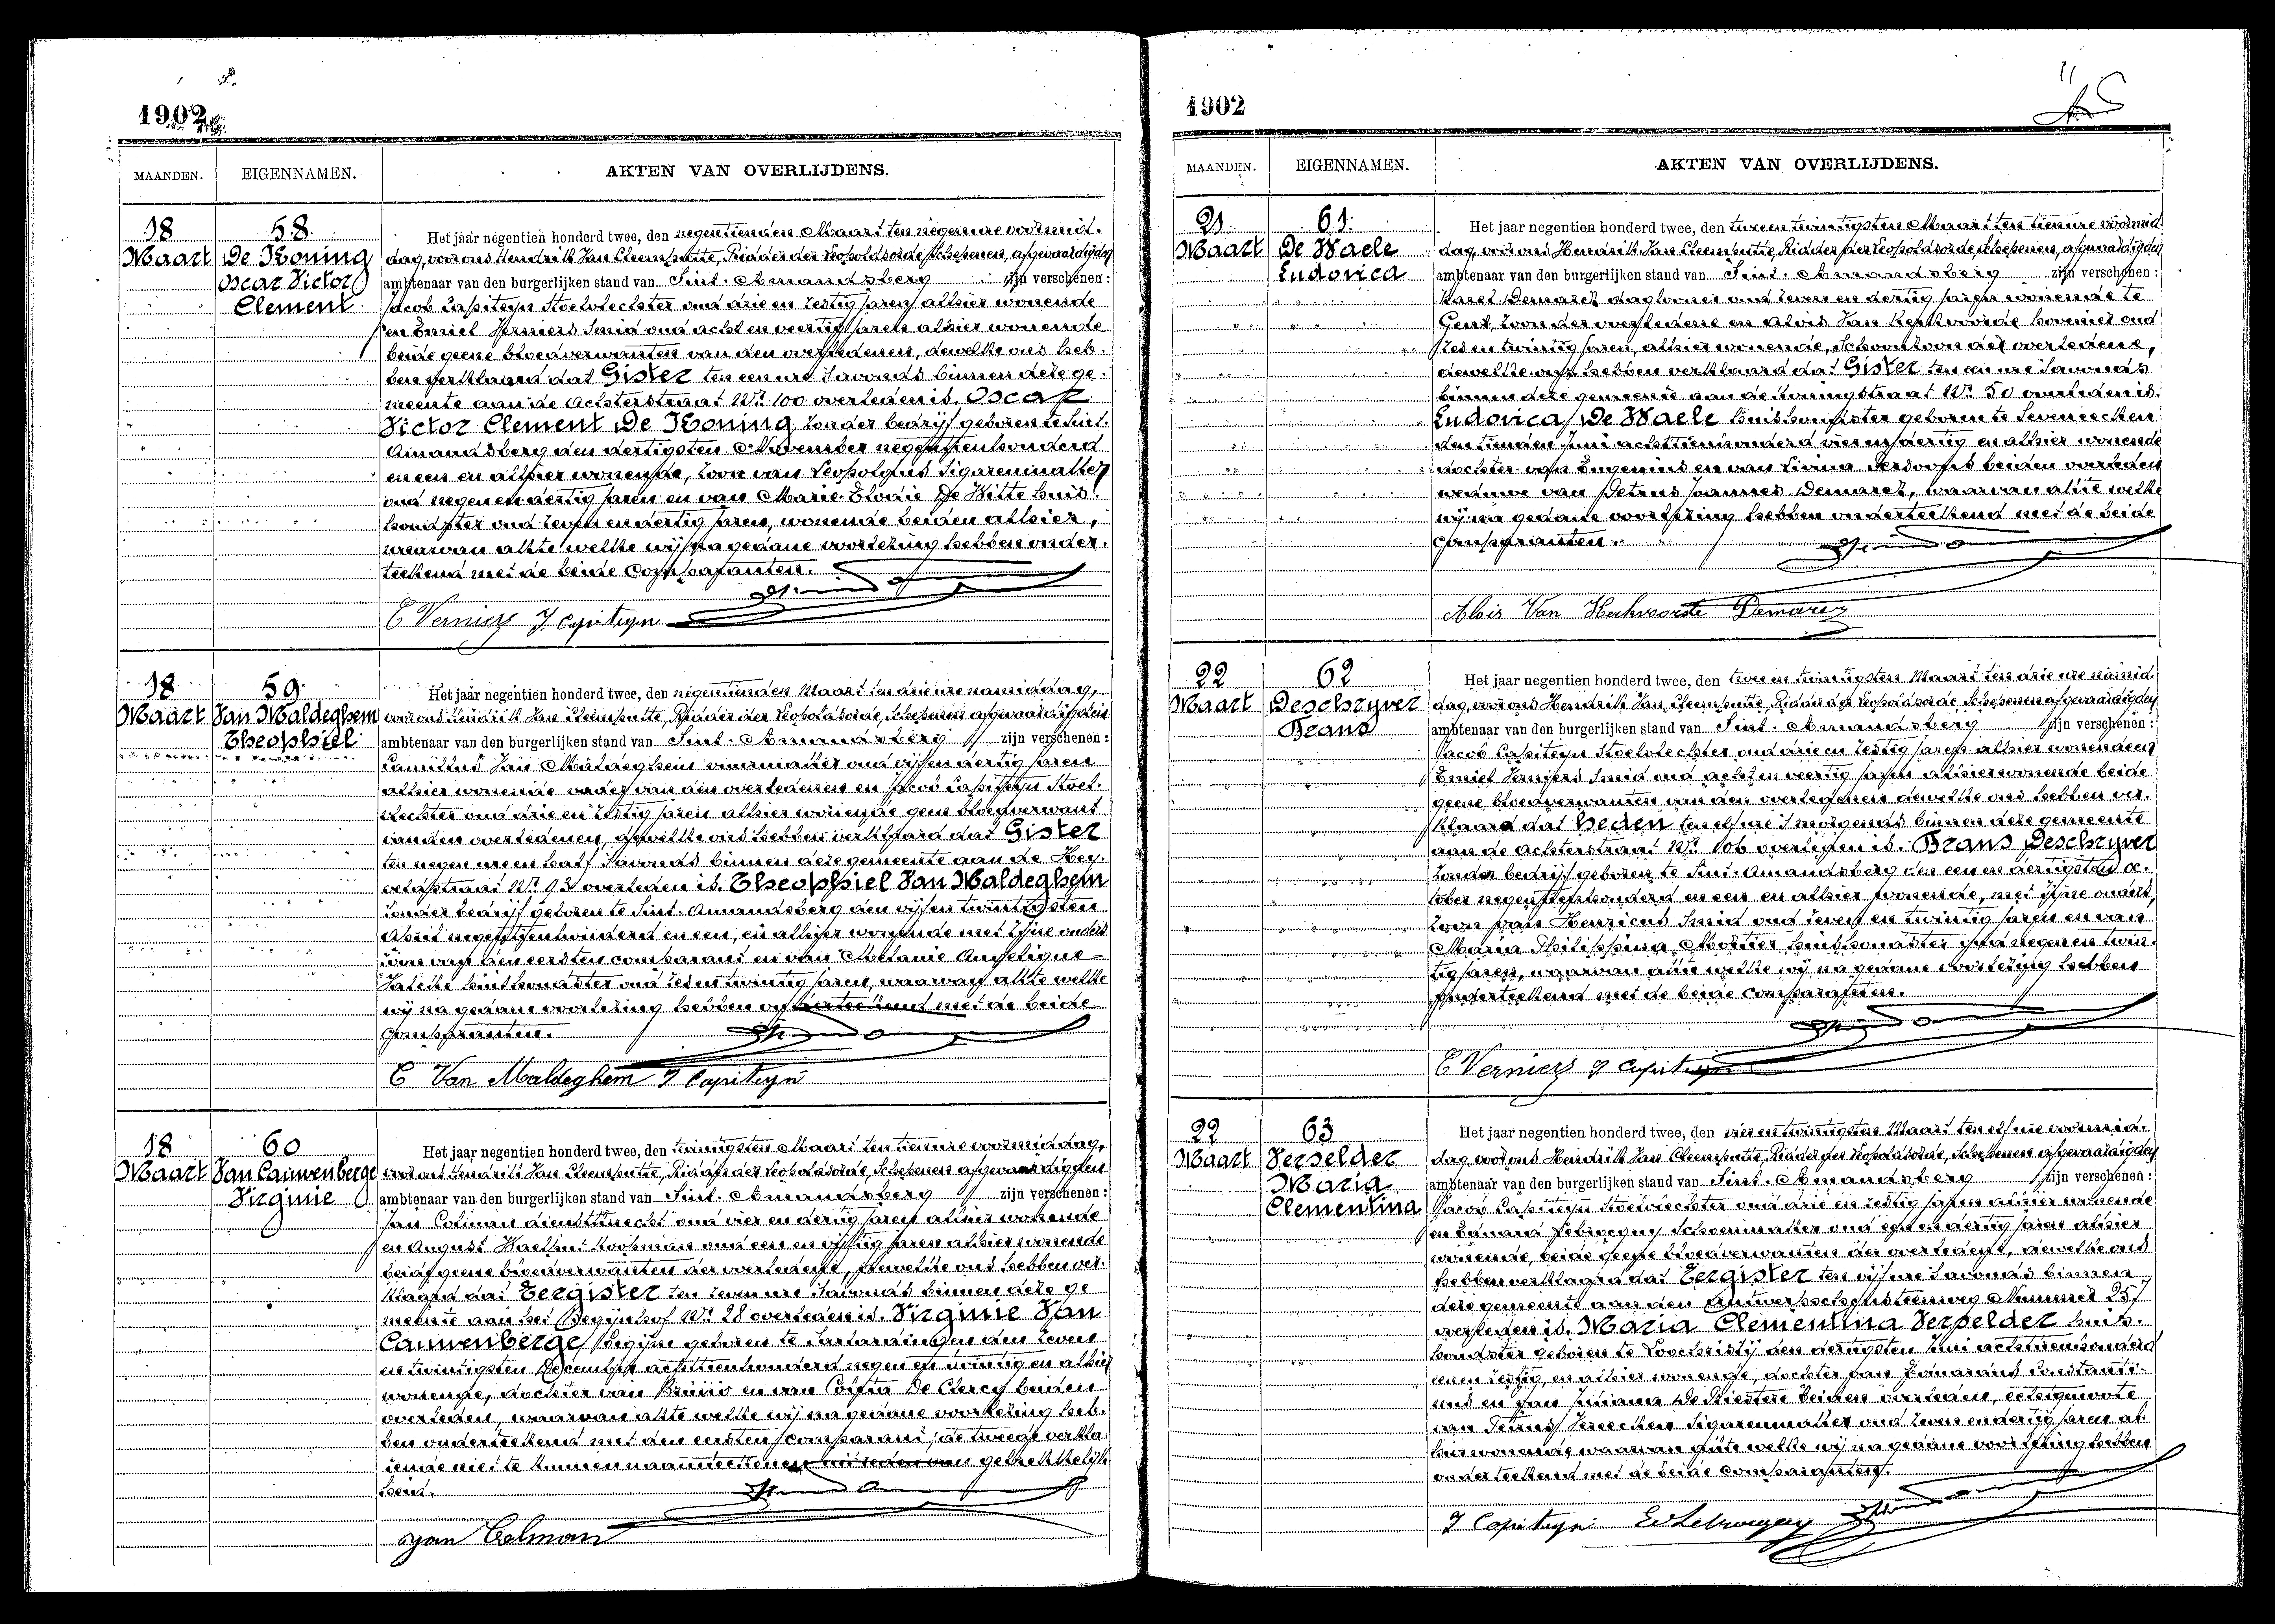 1902
MAANDEN. EIGENNAMEN. AKTEN VAN OVERLIJDENS.
18 58. Het jaar negentien honderd twee, den negentienden Maart ten negen ure voormid-
Maart De Koning dag, voor ons Hendrik Van Cleemputte, Ridder der Leopoldsorde, Schepenen, afgevaardigden
Oscar Victor ambtenaar van den burgerlijken stand van Sint-Amandsberg zijn verschenen:
Clement Jacob Capiteyn Stoelvlechter oud drie en zestig jaren alhier wonende
en Emiel Verniers Smid oud acht en veertig jaren alhier wonende
beide geene bloedverwanten van den overledenen, dewelke ons heb-
ben verklaard dat Gister ten een ure 's avonds binnen deze ge-
meente aan de Achterstraat Nr 100 overleden is. Oscar
Victor Clement De Koning zonder bedrijf geboren te Sint-
Amandsberg den dertigsten November negentienhonderd
en een en alhier wonende, zoon van Leopoldus Sigarenmaker
oud negen en dertig jaren en van Marie Elodie De Witte huis-
houdster oud zeven en dertig jaren, wonende beiden alhier,
waarvan akte welke wij na gedane voorlezing hebben onder-
teekend met de beide Comparanten.
E Verniers J. Capiteyn
18 59. Het jaar negentien honderd twee, den negentienden Maart ten drie ure namiddag,
Maart Van Maldeghem voor ons Hendrik Van Cleemputte, Ridder der Leopoldsorde, Schepenen afgevaardigden
Theophiel ambtenaar van den burgerlijken stand van Sint-Amandsberg zijn verschenen:
Camillus Van Maldeghem vuurmaker oud vijf en dertig jaren
alhier wonende vader van den overledenen en Jacob Capiteyn Stoel-
vlechter oud drie en zestig jaren alhier wonende geen bloedverwant
van den overledenen, dewelke ons hebben verklaard dat Gister
ten negen ure en half 's avonds binnen deze gemeente aan de
Nr 93 overleden is. Theophiel Van Maldeghem
zonder bedrijf geboren te Sint-Amandsberg den vijf en twintigsten
April negentienhonderd en een, en alhier wonende met zijne ouders
zoon van den eersten comparant en van Melanie Angelique
huishoudster oud zes en twintig jaren, waarvan akte welke
wij na gedane voorlezing hebben onderteekend met de beide
Comparanten.
C Van Maldeghem J Capiteyn
18 60 Het jaar negentien honderd twee, den twintigsten Maart ten tien ure voormiddag,
Maart Van Cauwenberge voor ons Hendrik Van Cleemputte, Ridder der Leopoldsorde, Schepenen afgevaardigden
Virginie ambtenaar van den burgerlijken stand van Sint-Amandsberg zijn verschenen:
Jan Colman dienstknecht oud vier en dertig jaren alhier wonende
en August Koopman oud een en vijftig jaren alhier wonende
beide geene bloedverwanten der overledene, dewelke ons hebben ver-
klaard dat Eergister ten zeven ure 's avonds binnen deze ge
meente aan het Begijnhof Nr 28 overleden is. Virginie Van
Cauwenberge, Begijne geboren te den zeven
en twintigsten December achttienhonderd negen en twintig en alhier
wonende, dochter van en van De Clercq beiden
overleden, waarvan akte welke wij na gedane voorlezing heb-
ben onderteekend met den eersten comparant; de tweede verkla
rende niet te kunnen naamteekenen
Jan Colman
1902
MAANDEN. EIGENNAMEN. AKTEN VAN OVERLIJDENS.
21 61. Het jaar negentien honderd twee, den twee en twintigsten Maart ten tien ure voormid
Maart De Waele dag, voor ons Hendrik Van Cleemputte, Ridder der Leopoldsorde, Schepenen, afgevaardigden
Ludovica ambtenaar van den burgerlijken stand van Sint-Amandsberg zijn verschenen:
Karel Demarez daglooner oud zeven en dertig jaren wonende te
Gent, zoon der overledene en Alois Van Kerkvoorde hovenier oud
zes en twintig jaren, alhier wonende, schoonzoon der overledene,
dewelke ons hebben verklaard dat Gister ten een ure 's avonds
binnen deze gemeente aan de Koningstraat Nr 50 overleden is.
Ludovica De Waele huishoudster geboren te Seveneecken
den tienden Juni achttienhonderd vier en dertig en alhier wonende
dochter van Eugenius en van Livina beiden overleden
weduwe van Petrus Joannes Demarez, waarvan akte welke
wij na gedane voorlezing hebben onderteekend met de beide
Comparanten.
Alois Van Kerkvoorde Demarez
22 62 Het jaar negentien honderd twee, den twee en twintigsten Maart ten drie ure namid-
Maart Deschryver dag, voor ons Hendrik Van Cleemputte, Ridder der Leopoldsorde, Schepenen afgevaardigden
Frans ambtenaar van den burgerlijken stand van Sint-Amandsberg zijn verschenen:
Jacob Capiteyn Stoelvlechter oud drie en zestig jaren alhier wonende en
Emiel Verniers Smid oud acht en veertig jaren alhier wonende beide
geene bloedverwanten van den overledenen dewelke ons hebben ver-
klaard dat Heden ten elf ure 's morgends binnen deze gemeente
aan de Achterstraat Nr 106 overleden is. Frans Deschryver
zonder bedrijf geboren te Sint-Amandsberg den een en dertigsten Oc-
tober negentienhonderd en een en alhier wonende, met zijne ouders,
zoon van Henricus Smid oud zeven en twintig jaren en van
Maria Philippina Mortier huishoudster oud negen en twin-
tig jaren, waarvan akte welke wij na gedane voorlezing hebben
onderteekend met de beide comparanten.
E Verniers J Capiteyn
22 63 Het jaar negentien honderd twee, den vier en twintigsten Maart ten elf ure voormid-
Maart Verselder dag, voor ons Hendrik Van Cleemputte, Ridder der Leopoldsorde, Schepenen afgevaardigden
Maria ambtenaar van den burgerlijken stand van Sint-Amandsberg zijn verschenen:
Clementina Jacob Capiteyn Stoelvlechter oud drie en zestig jaren alhier wonende
en Eduard Schoenmaker oud en dertig jaren alhier
wonende, beide geene bloedverwanten der overledene, dewelke ons
hebben verklaard dat Eergister ten vijf ure 's avonds binnen
deze gemeente aan den Antwerpschensteenweg Nummer 257
overleden is. Maria Clementina Verselder huis-
houdster geboren te Loochristij den dertigsten Juni achttienhonderd
zestig, en alhier wonende, dochter van Constanti-
nus en van Juliana De beiden overleden, echtgenoote
van Petrus Sigarenmaker oud zeven en dertig jaren al-
hier wonende, waarvan akte welke wij na gedane voorlezing hebben
onderteekend met de beide comparanten.
J Capiteyn